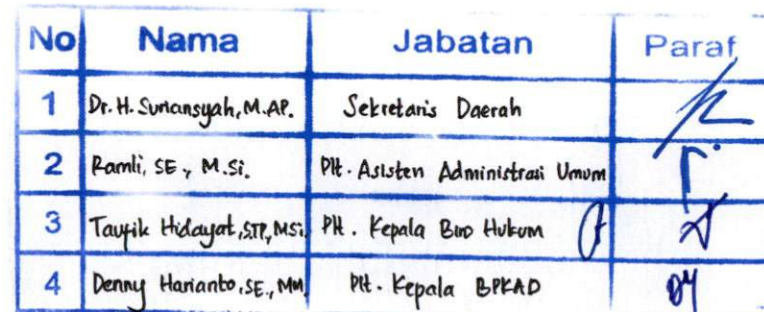 No Nama Jabatan Paraf
1 Dr. H. Suriansyah, M.AP. Sekretaris Daerah
2 Ramli, SE., M.Si. Plt. Asisten Administrasi Umum
3 Taufik Hidayat, STP, MSi. Plt. Kepala Biro Hukum
4 Denny Harianto, SE., MM. Plt. Kepala BPKAD